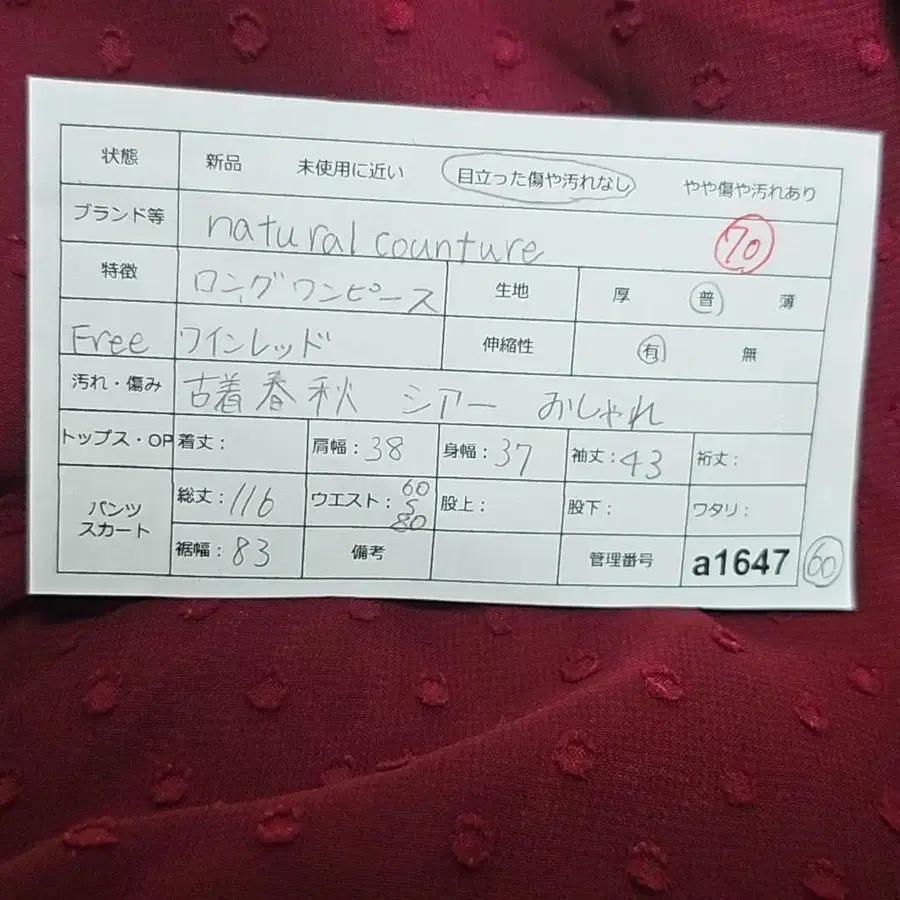 状態 新品 未使用に近い 目立った傷や汚れなし やや傷や汚れあり
ブランド等 natural counture 70
特徴 ロングワンピース 生地 厚 普 薄
Free ワインレッド 伸縮性 有 無
汚れ・傷み 古着 春 秋 シアー おしゃれ
トップス・OP 着丈: 肩幅:38 身幅:37 袖丈:43 裄丈:
パンツ スカート 総丈:116 ウエスト:60 S 80 股上: 股下: ワタリ:
裾幅:83 備考 管理番号 a1647 60